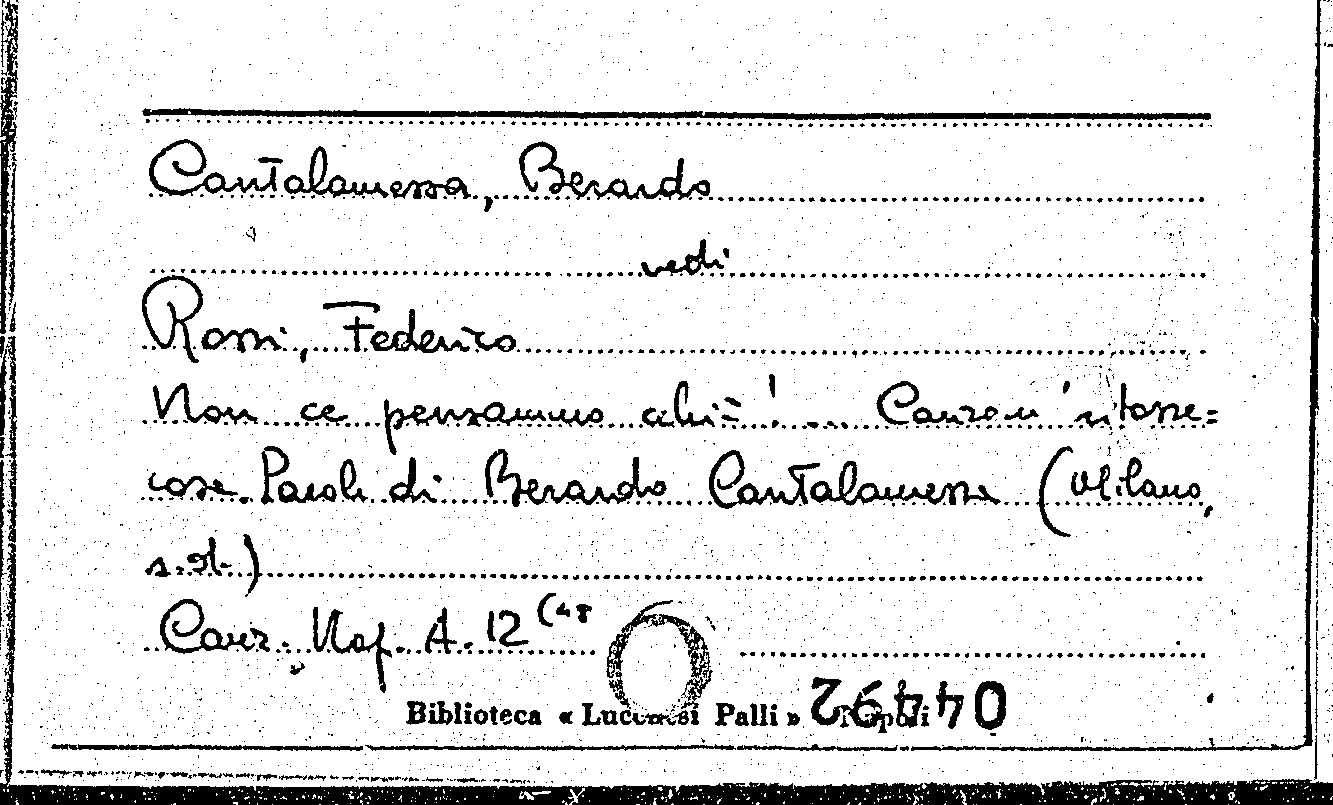 Cantalamessa, Berardo
vedi
Rossi, Federico
Non ce pensammo cchiù!... Canzon 'ntosse=
cosa. Parole di Berardo Cantalamessa (Milano,
Canz. Nap. A. 12 (48
Biblioteca « Lucchesi Palli » Napoli
04492